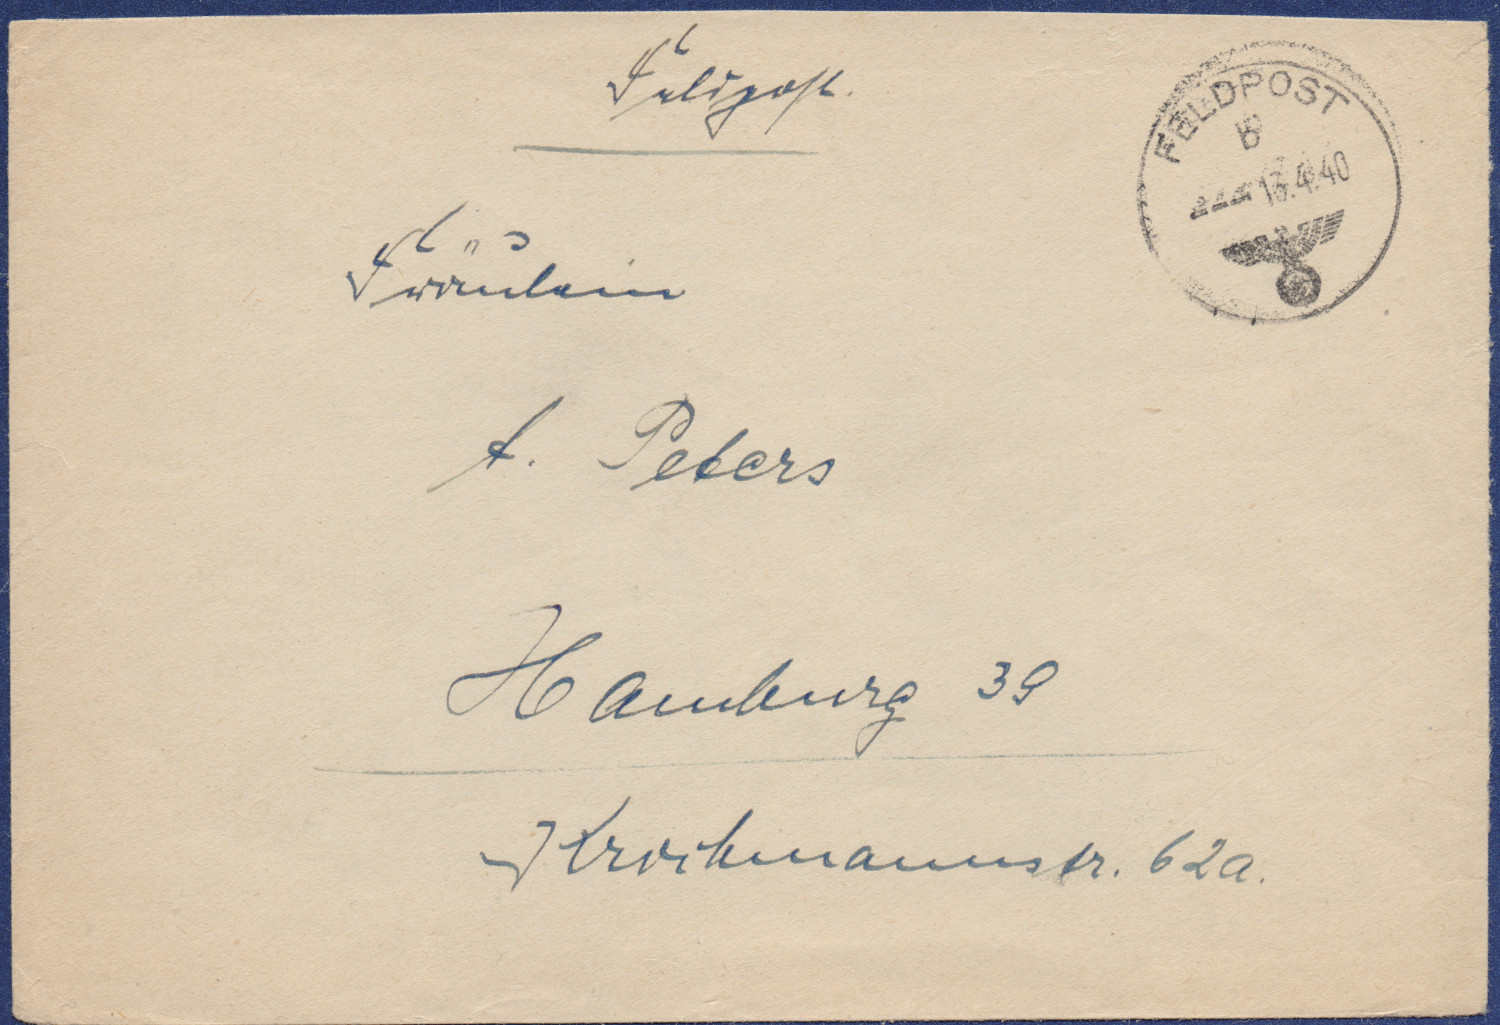 Feldpost.
FELDPOST
b
13.4.40
Fräulein
A. Peters
Hamburg 39
Krochmannstr. 62a.